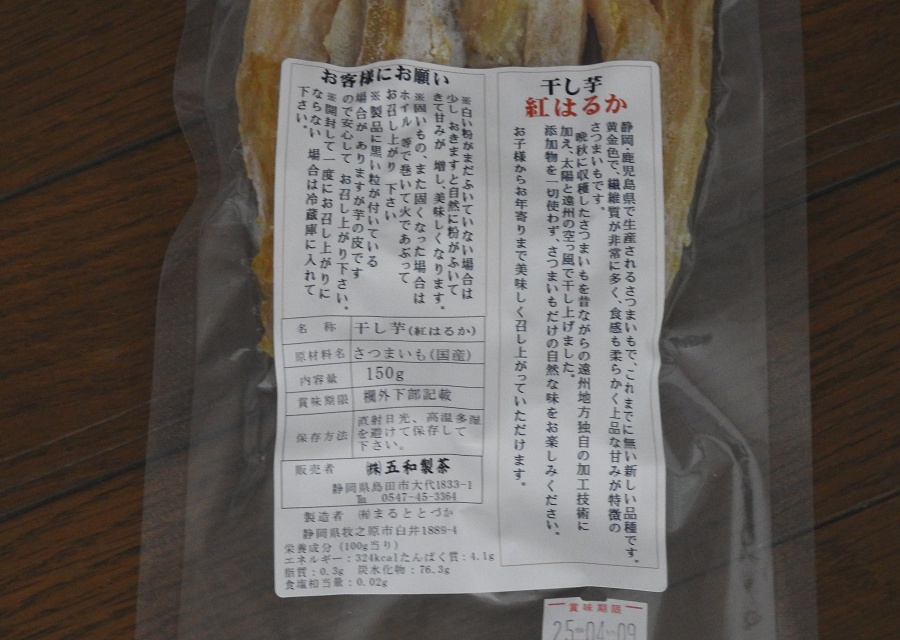 干し芋
紅はるか
静岡・鹿児島県で生産されるさつまいもで、これまでに無い新しい品種です。
黄金色で、繊維質が非常に多く、食感も柔らかく上品な甘みが特徴の
さつまいもです。
晩秋に収穫したさつまいもを昔ながらの遠州地方独自の加工技術に
加え、太陽と遠州の空っ風で干し上げました。
添加物を一切使わず、さつまいもだけの自然な味をお楽しみください。
お子様からお年寄りまで美味しく召し上がっていただけます。
お客様にお願い
※白い粉がまだふいていない場合は
少し おきますと自然に粉がふいて
きて甘みが 増し、美味しくなります。
※固いもの、また固くなった場合は
ホイル 等で巻いて火であぶって
お召し上がり 下さい
※製品に黒い粒が付いている
場合が ありますが芋の皮です
ので安心して お召し上がり下さい。
※開封して一度にお召し上がりに
ならない 場合は冷蔵庫に入れて
下さい。
名 称 干し芋(紅はるか)
原材料名 さつまいも(国産)
内容量 150g
賞味期限 欄外下部記載
保存方法 直射日光、高温多湿
を避けて保存して
下さい。
販売者 ㈱五和製茶
静岡県島田市大代1833-1
℡ 0547-45-3364
製造者 ㈲まるととづか
静岡県牧之原市白井1889-4
栄養成分(100g当り)
エネルギー:324kcalたんぱく質:4.1g
脂質:0.3g 炭水化物:76.3g
食塩相当量:0.02g
賞味期限
25-04-09